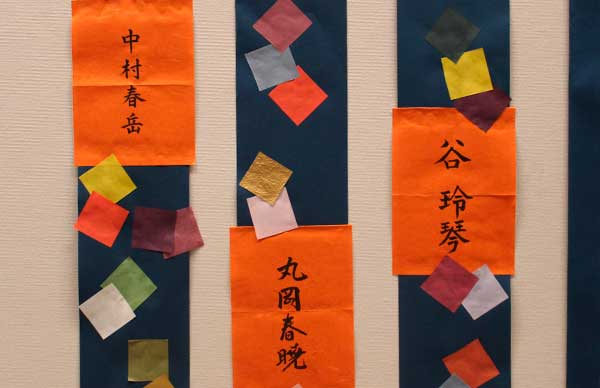 中村春岳
丸岡春曉
谷玲琴